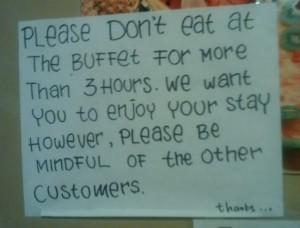 PLEASE DON'T eat at
The BUFFET FOR MORE
Than 3 HOURS. WE WANT
YOU to enjoy YOUR STAY
HOWEVER, PLEASE BE
MINDFUL OF the OTHER
CUSTOMERS.
thanks...